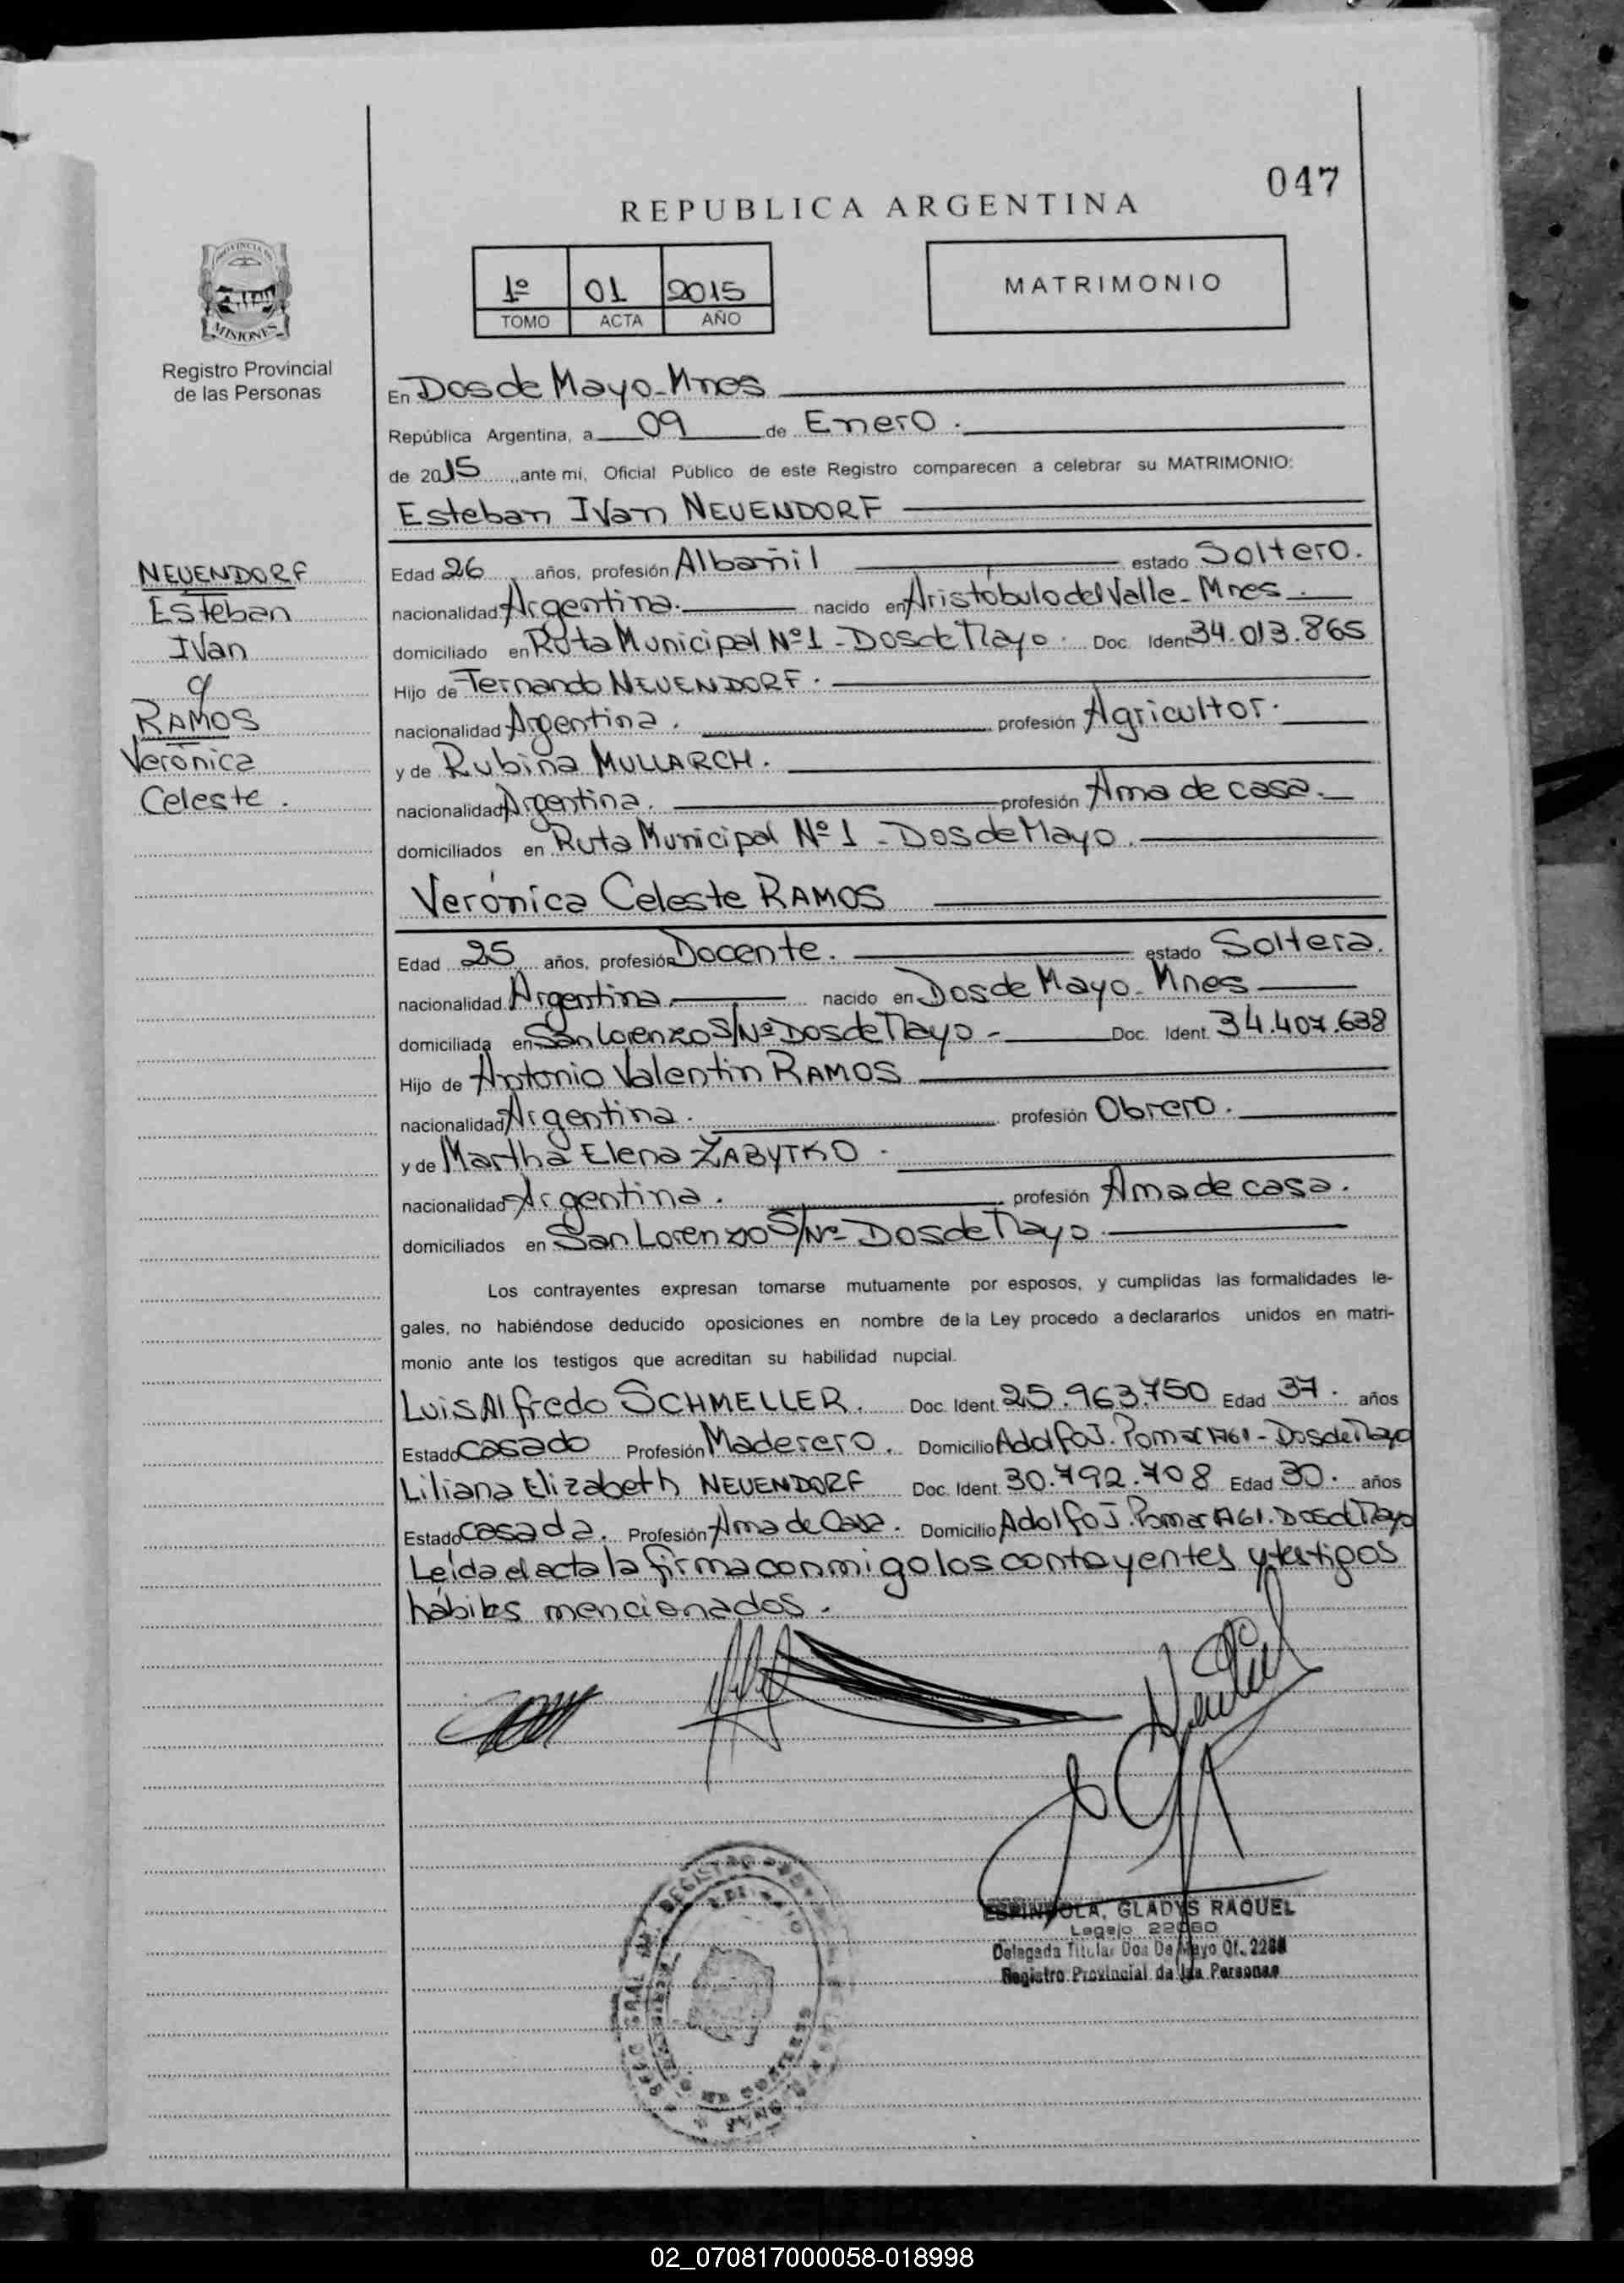 047
REPUBLICA ARGENTINA
1º 01 2015
TOMO ACTA AÑO
MATRIMONIO
PROVINCIA DE
MISIONES
Registro Provincial
de las Personas
En Dos de Mayo - Mnes
República Argentina, a 09 de Enero.
de 2015 ante mí, Oficial Público de este Registro comparecen a celebrar su MATRIMONIO:
Esteban Ivan NEUENDORF
NEUENDORF
Esteban
Ivan
y
RAMOS
Verónica
Celeste.
Edad 26 años, profesión Albañil estado Soltero.
nacionalidad Argentina. nacido en Aristóbulo del Valle - Mnes.
domiciliado en Ruta Municipal Nº 1 - Dos de Mayo. Doc. Ident. 34.013.865
Hijo de Fernando NEUENDORF.
nacionalidad Argentina. profesión Agricultor.
y de Rubina MULLARCH.
nacionalidad Argentina. profesión Ama de casa.
domiciliados en Ruta Municipal Nº 1 - Dos de Mayo.
Verónica Celeste RAMOS
Edad 25 años, profesión Docente. estado Soltera.
nacionalidad Argentina. nacido en Dos de Mayo - Mnes
domiciliada en San Lorenzo S/Nº Dos de Mayo - Doc. Ident. 34.407.638
Hijo de Antonio Valentin RAMOS
nacionalidad Argentina. profesión Obrero.
y de Martha Elena ZABYTKO.
nacionalidad Argentina. profesión Ama de casa.
domiciliados en San Lorenzo S/Nº Dos de Mayo.
Los contrayentes expresan tomarse mutuamente por esposos, y cumplidas las formalidades le-
gales, no habiéndose deducido oposiciones en nombre de la Ley procedo a declararlos unidos en matri-
monio ante los testigos que acreditan su habilidad nupcial.
Luis Alfredo SCHMELLER. Doc. Ident. 25.963.750 Edad 37. años
Estado casado Profesión Maderero. Domicilio Adolfo J. Pomar 1761 - Dos de Mayo
Liliana Elizabeth NEUENDORF Doc. Ident. 30.792.708 Edad 30. años
Estado casada. Profesión Ama de Casa. Domicilio Adolfo J. Pomar 1761. Dos de Mayo
Leída el acta la firma conmigo los contayentes y testigos
hábiles mencionados.
ESPINDOLA, GLADYS RAQUEL
Legajo 22060
Delegada Titular Dos De Mayo Of.
Registro Provincial de las Personas
02_070817000058-018998